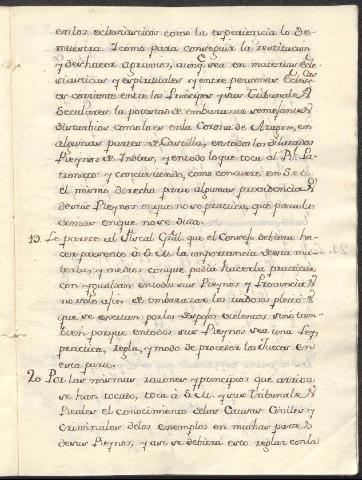 en los eclesiasticos como la experiencia lo de-
muestra. I como para conseguir la restitucion
y deshacer agravios, aunq.e sea en materias Ecle-
siasticas y espirituales y entre personas Ecles.cas
es corriente entre los Principes y sus Tribunales
Seculares la potestad de embarazar semejantes
disturbios como lo es en la Corona de Aragon, en
algunas partes de Castilla, en todos los dilatados
Reynos de Indias, y en todo lo que toca al Rl. Pa-
tronato y concurriendo, como concurre en S. M.
el mismo derecho para algunas providencias
de sus Reynos en que no se practica, que para las
demas en que se usa.
19. Le parece al Fiscal Gral. que el Consejo debiera ha-
cer presente a S. M. la importancia de esta ma-
teria, y medios con que podia hacerla practicar
con igualdad en todos sus Reynos y Provincias
no solo a fin de embarazar los ruidosos pleitos
que se excitan por los despojos violentos sino tam-
bien porque en todos sus Reynos sea una Ley,
practica, regla, y modo de proceder los Jueces en
esta parte.
20. Por las mismas razones y principios que arriba
se han tocado, toca à S. M. y sus Tribunales
Reales el conocimiento de las Causas Civiles y
Criminales de los exemptos en muchas partes
de sus Reynos, y asi se debiera esto reglar con la